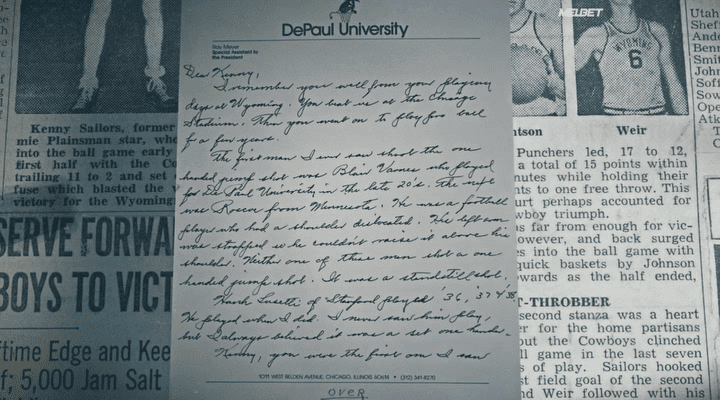 MELBET
DePaul University
Ray Meyer
Special Assistant to
the President
Dear Kenny,
I remember you well from your playing
days at Wyoming. You beat us at the Chicago
Stadium. Then you went on to play pro ball
for a few years.
The first man I ever saw shoot the one
handed jump shot was Blair Varnes who played
for De Paul University in the late 20's. The next
was Roscoe from Minnesota. He was a football
player who had a shoulder dislocated. His left arm
was strapped so he couldn't raise it above his
shoulder. Neither one of these men shot a one
handed jump shot. It was a standstill shot.
Hank Lusetti of Stanford played '36, '37 & '38.
He played when I did. I never saw him play,
but I always believed it was a set one hander.
Kenny, you were the first one I saw
1011 WEST BELDEN AVENUE, CHICAGO, ILLINOIS 60614 • (312) 341-8270
over
Kenny Sailors, former
mie Plainsman star, who
into the ball game early
first half with the Co
trailing 11 to 2 and set
fuse which blasted the
victory for the Wyoming
SERVE FORWA
BOYS TO VICT
ftime Edge and Kee
f; 5,000 Jam Salt
WYOMING
6
ntson Weir
Punchers led, 17 to 12,
a total of 15 points within
nutes while holding their
nts to one free throw. This
urt perhaps accounted for
wboy triumph.
s far from enough for vic-
owever, and back surged
es into the ball game with
quick baskets by Johnson
wards as the half ended,
T-THROBBER
second stanza was a heart
er for the home partisans
out the Cowboys clinched
ll game in the last seven
s of play. Sailors hooked
st field goal of the second
nd Weir followed with his
Utah
Shef
Ande
Benn
Smit
John
Soff
Sow
Ope
Atk
T
C